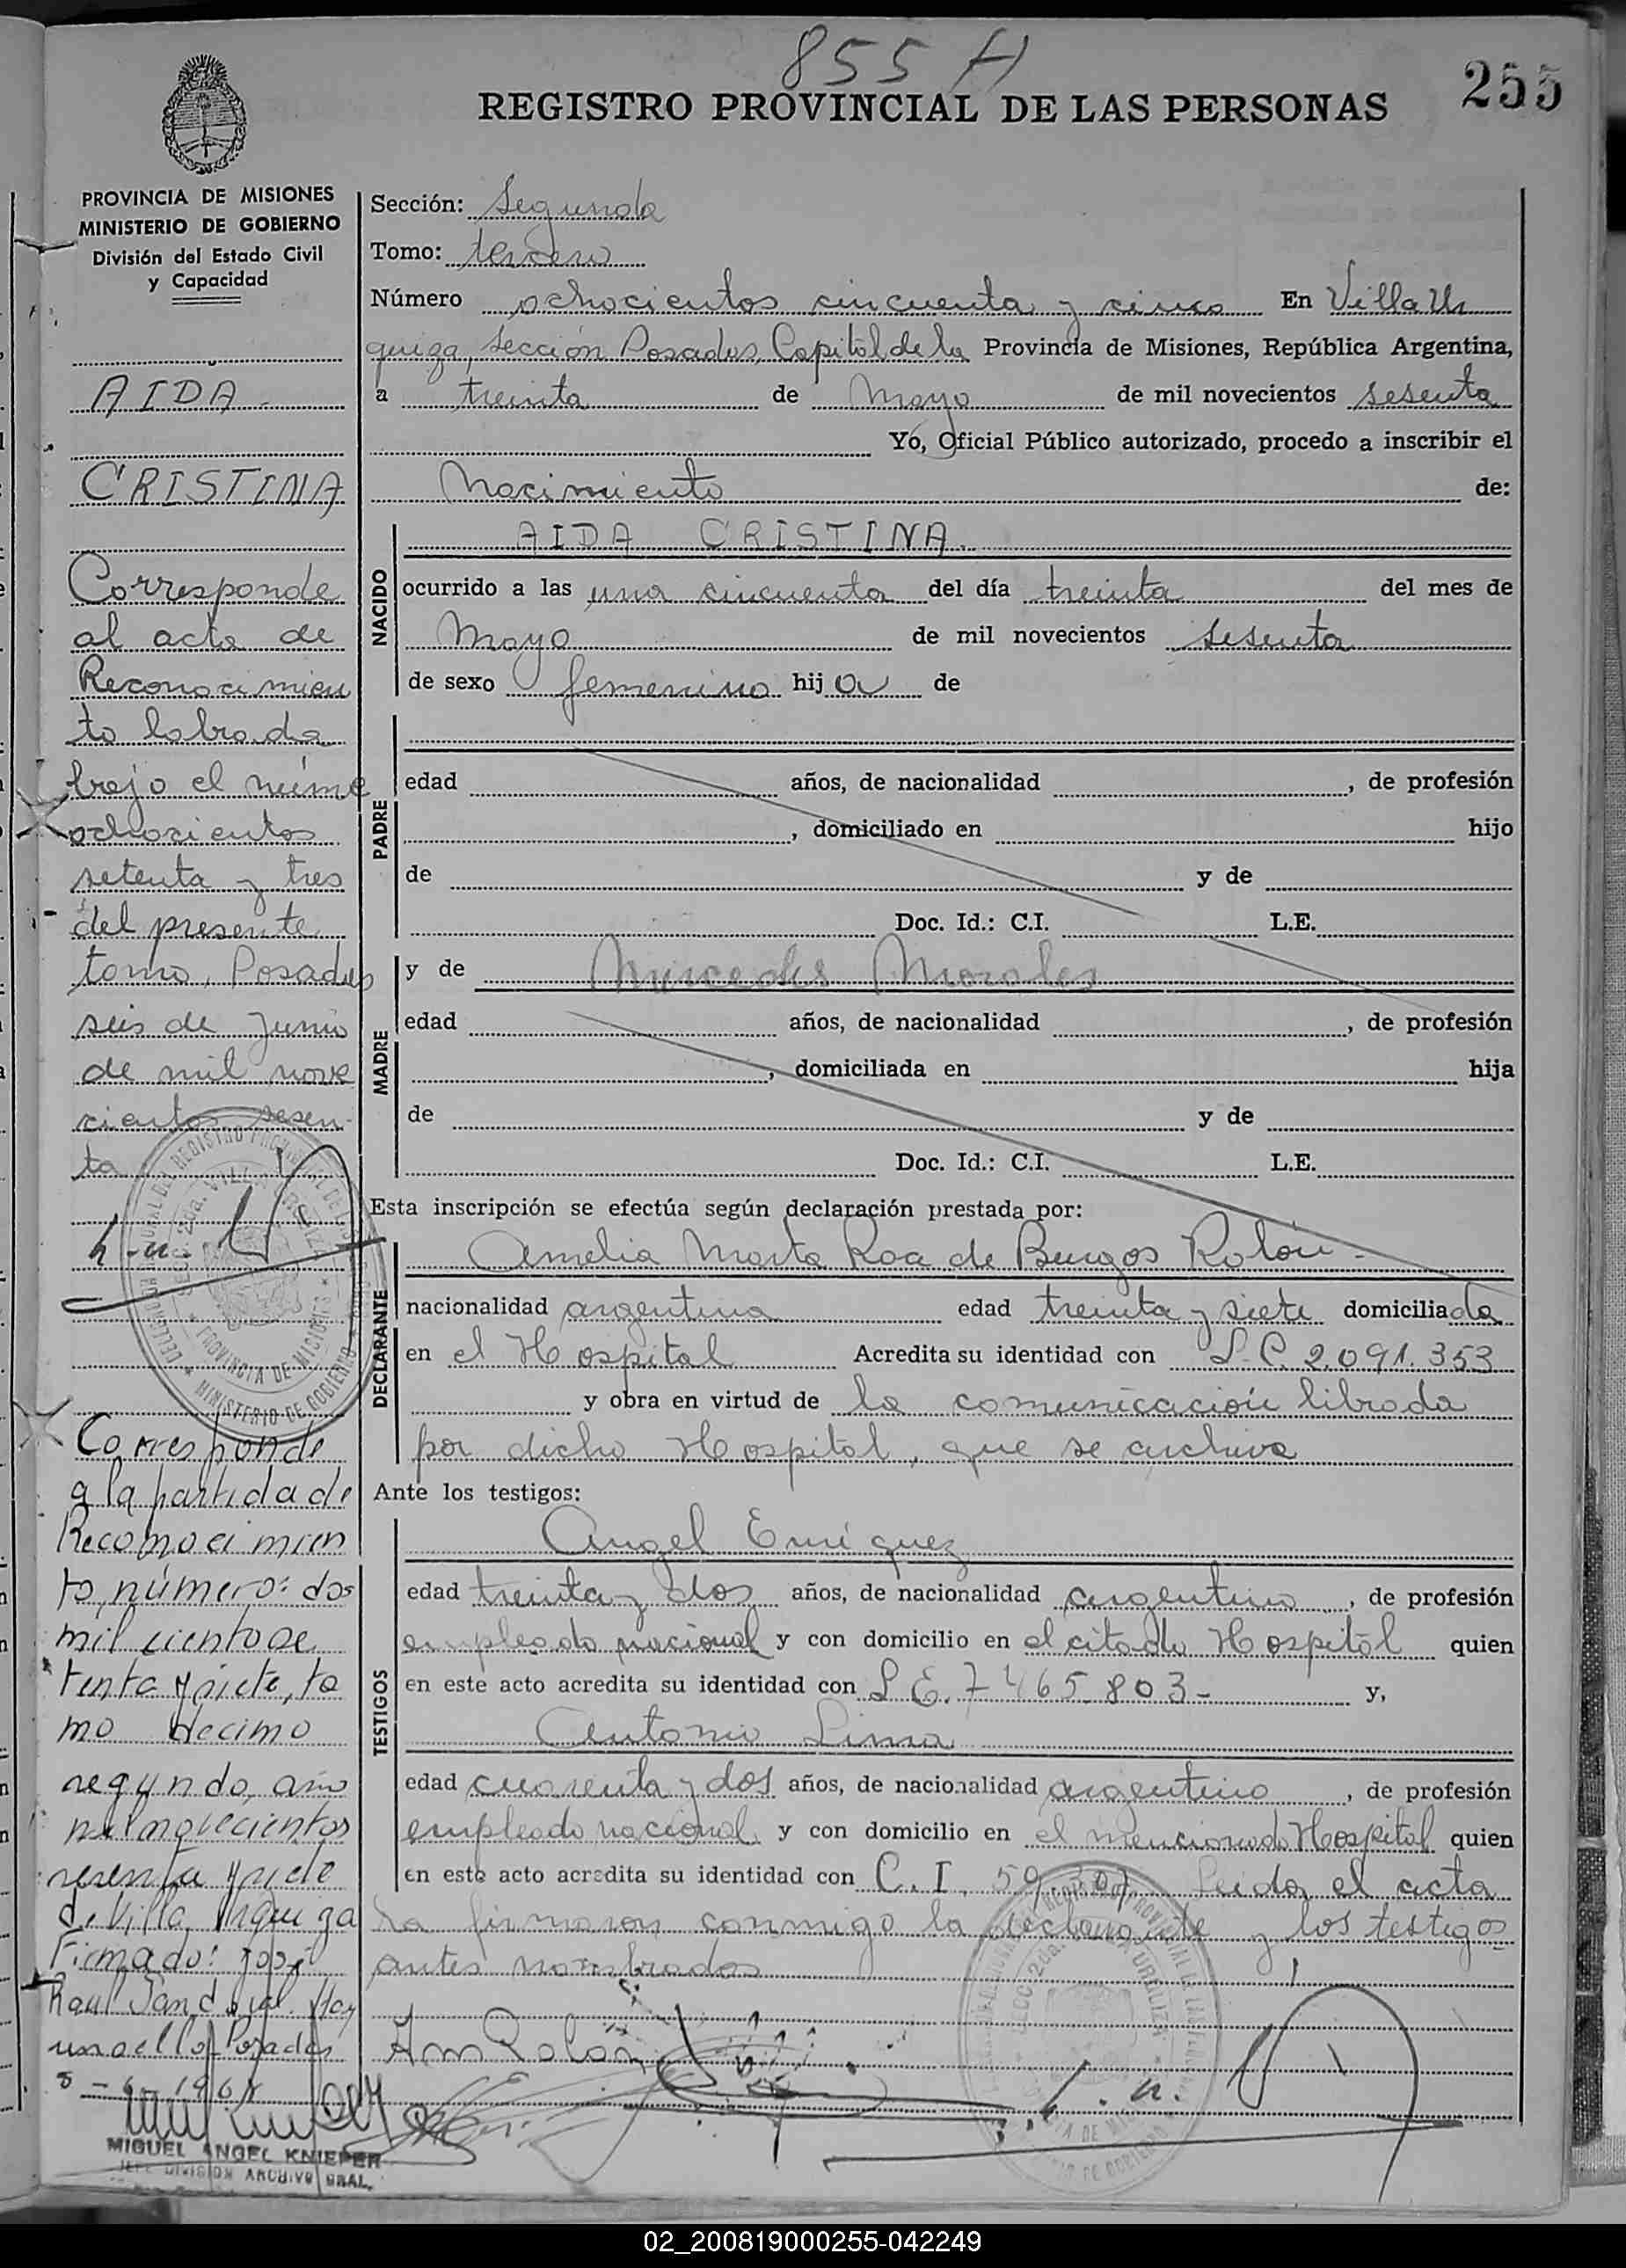 855 H
255
REGISTRO PROVINCIAL DE LAS PERSONAS
PROVINCIA DE MISIONES
MINISTERIO DE GOBIERNO
División del Estado Civil
y Capacidad
AIDA
CRISTINA
Corresponde
al acta de
Reconocimien
to labrada
bajo el núme
ochocientos
setenta y tres
del presente
tomo, Posadas
seis de Junio
de mil nove
cientos sesen-
ta
Corresponde
a la partida de
Reconocimien
to, número: dos
mil ciento se
tenta y siete, to
mo decimo
segundo, año
mil novecientos
sesenta y siete
de Villa Urquiza
Firmado: José
Raul Sandoval. Hay
un sello Posadas
MIGUEL ANGEL KNIEPER
JEFE DIVISION ARCHIVO GRAL.
Sección: Segunda
Tomo: tercero
Número ochocientos cincuenta y cinco En Villa Ur
quiza, Sección Posadas, Capital de la Provincia de Misiones, República Argentina,
a treinta de Mayo de mil novecientos sesenta
Yo, Oficial Público autorizado, procedo a inscribir el
Nacimiento de:
NACIDO
AIDA CRISTINA.
ocurrido a las una cincuenta del día treinta del mes de
Mayo de mil novecientos sesenta
de sexo femenino hija de
PADRE
edad años, de nacionalidad , de profesión
, domiciliado en hijo
de y de
Doc. Id.: C.I. L.E.
MADRE
y de Mercedes Morales
edad años, de nacionalidad , de profesión
, domiciliada en hija
de y de
Doc. Id.: C.I. L.E.
Esta inscripción se efectúa según declaración prestada por:
DECLARANTE
Amelia Marta Roa de Burgos Rolón-
nacionalidad argentina edad treinta y siete domiciliada
en el Hospital Acredita su identidad con L.C. 2.091.353
y obra en virtud de la comunicación librada
por dicho Hospital, que se archiva
Ante los testigos:
TESTIGOS
Angel Enriquez
edad treinta y dos años, de nacionalidad argentino, de profesión
empleado nacional y con domicilio en el citado Hospital quien
en este acto acredita su identidad con L.E. 7465.803- y,
Antonio Lima
edad cuarenta y dos años, de nacionalidad argentino, de profesión
empleado nacional y con domicilio en el mencionado Hospital quien
en este acto acredita su identidad con C.I. Leida el acta
la firmaron conmigo la declarante y los testigos
antes nombrados
Am Rolón
02_200819000255-042249